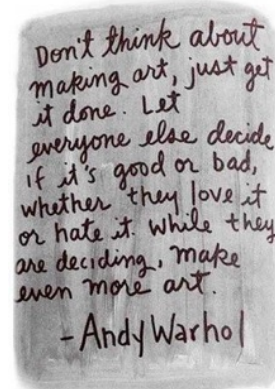 Don't think about
making art, just get
it done. Let
everyone else decide
if it's good or bad,
whether they love it
or hate it. while they
are deciding, make
even more art.
- Andy Warhol